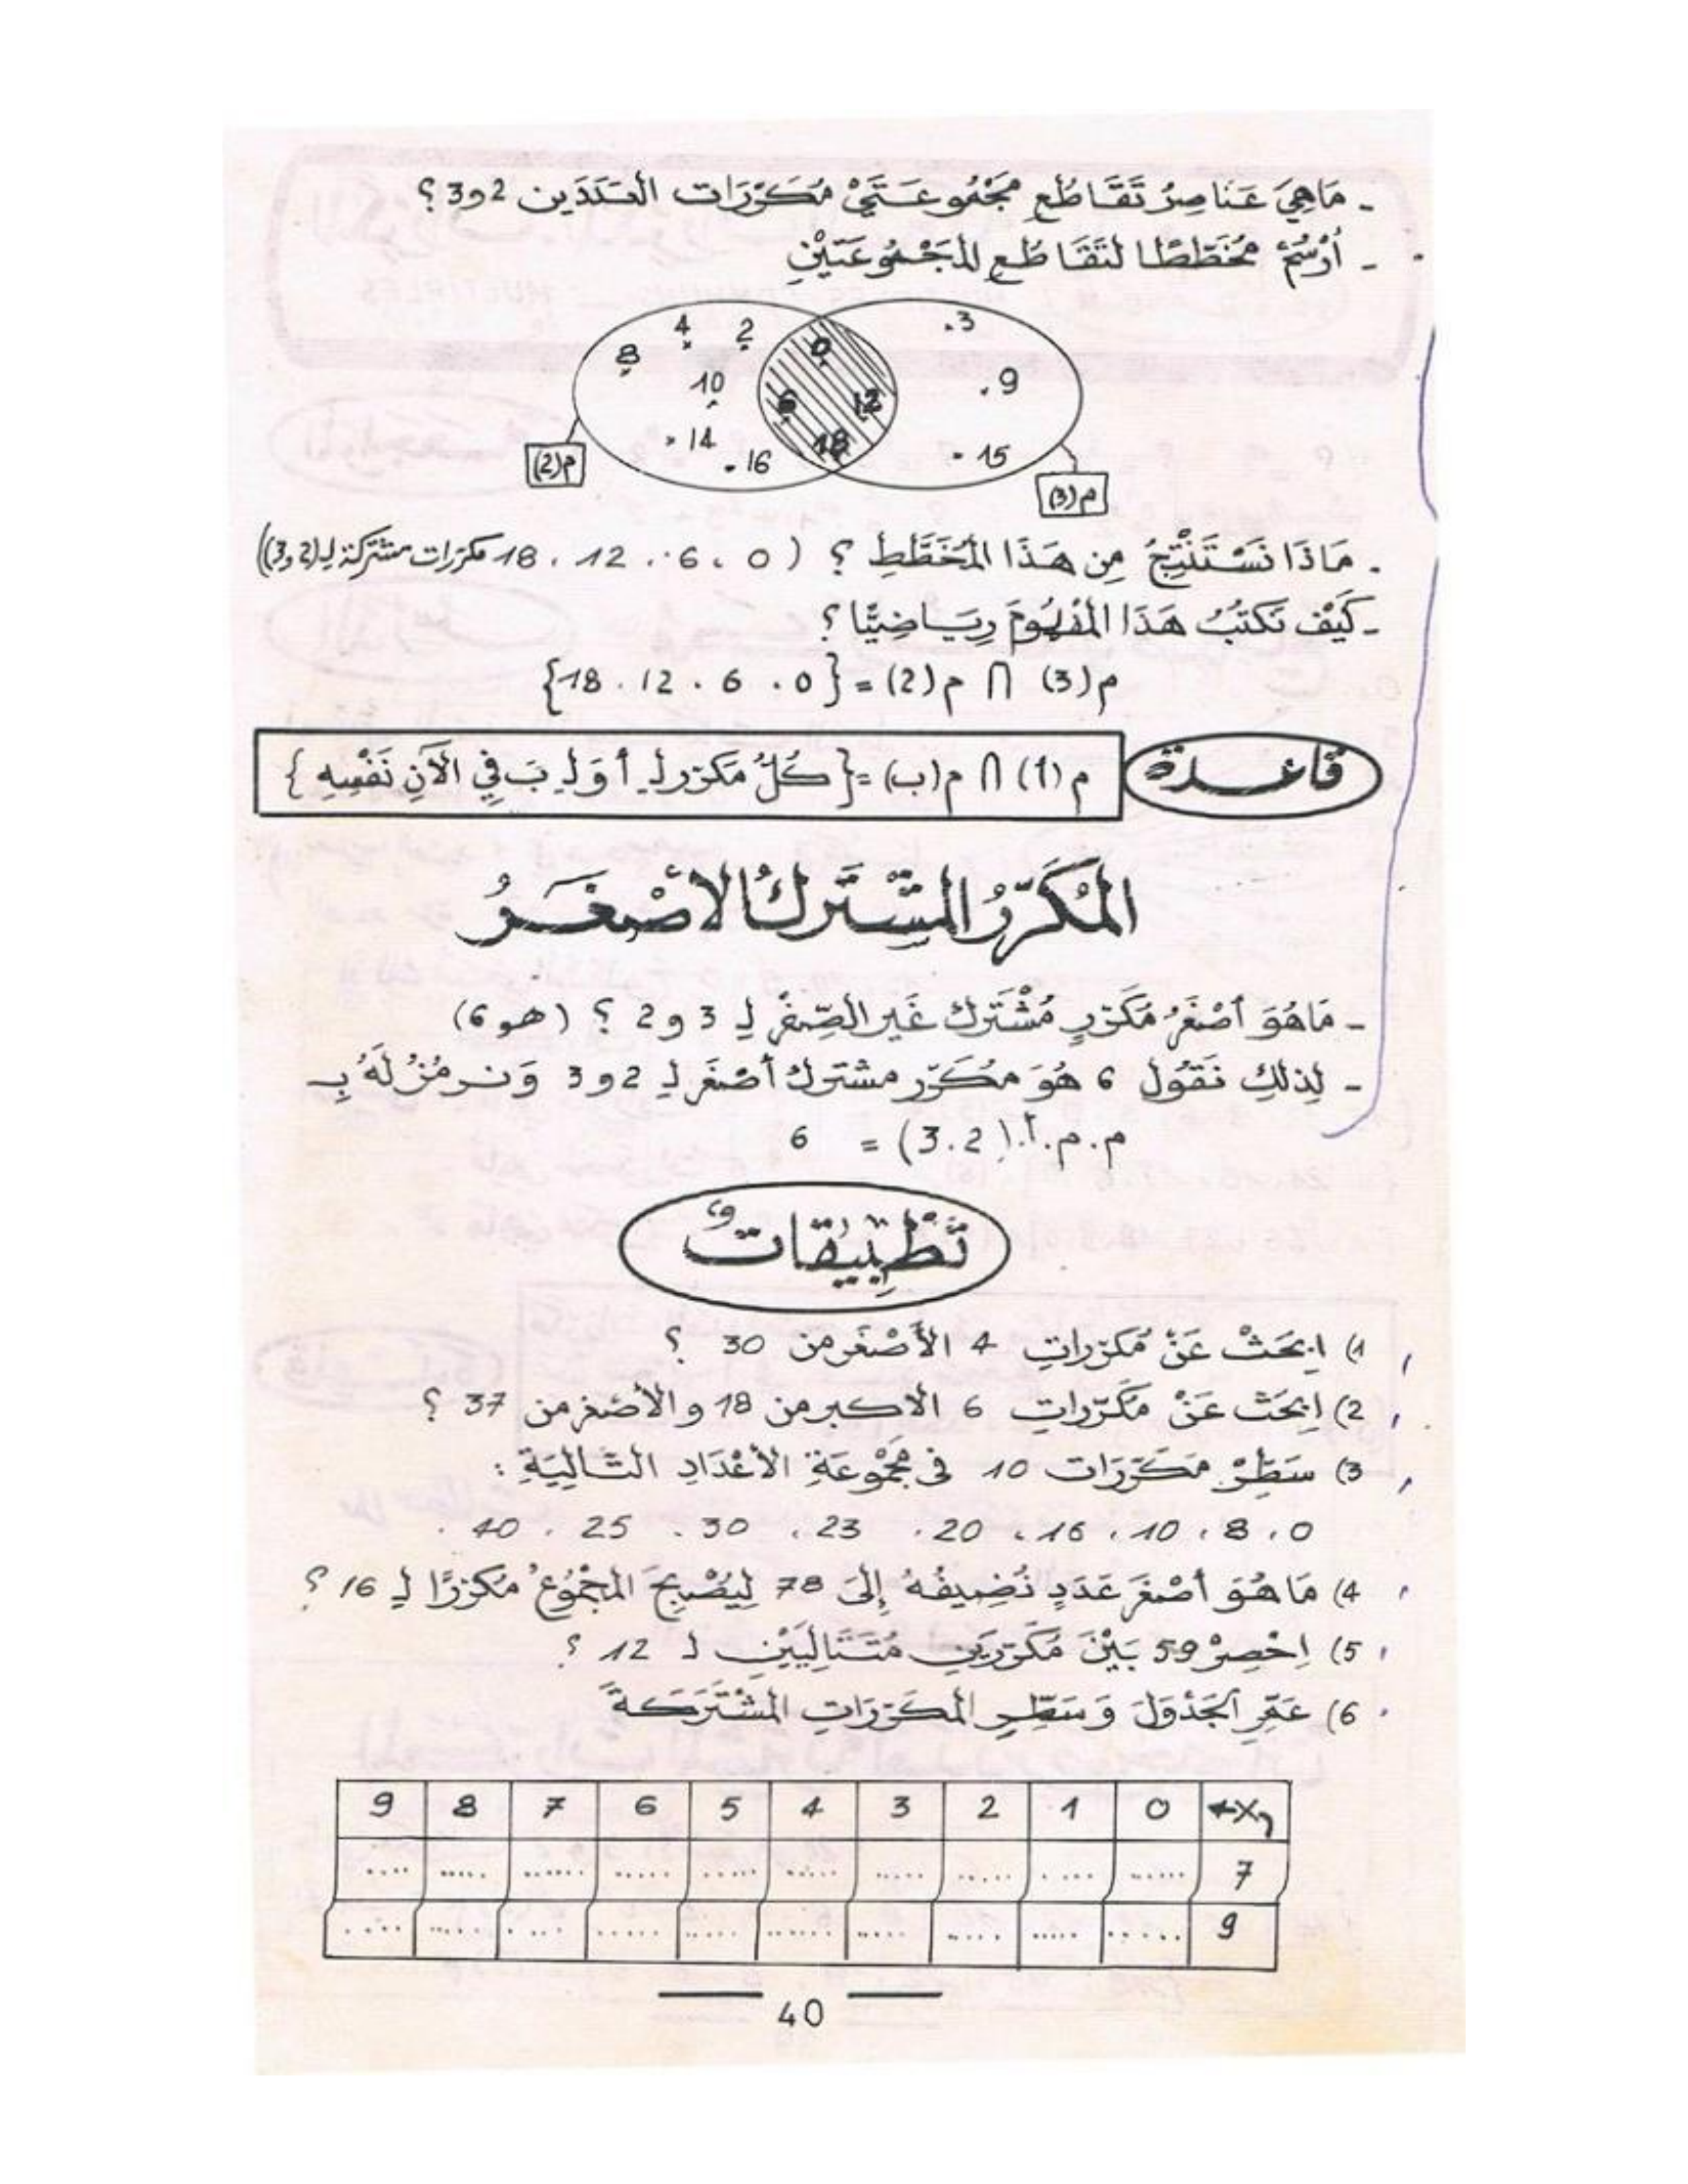 - مَاهِيَ عَنَاصِرُ تَقَاطُع مَجْمُوعَتَيْ مُكَرَّرَات العَدَدَين 2 و 3 ؟
- أُرْسُمْ مُخَطَّطًا لتَقَاطُع المَجْمُوعَتَيْنِ
4 2 0 .3
8 10 6 12 .9
14 .16 18 .15
م(2)
م(3)
- مَاذَا نَسْتَنْتِجُ مِن هَذَا المُخَطَّطِ ؟ ( 0 ، 6 ، 12 ، 18 مكرّرات مشتركة لـ (2 و 3))
- كَيْفَ نَكتُبُ هَذَا المَفْهُومَ رِيَاضِيًّا ؟
م(3) ∩ م(2) = {0 . 6 . 12 . 18}
قاعدة
م(أ) ∩ م(ب) = {كُلُّ مَكرّر لـ أ وَ لـ بَ فِي الآنِ نَفْسِهِ }
المُكَرَّرُ المُشْتَرَكُ الأصْغَرُ
- مَاهُوَ أصْغَرُ مُكَرّرٍ مُشْتَرَك غَير الصِّفْر لِـ 3 و 2 ؟ (هو 6)
- لِذلِكَ نَقُول 6 هُوَ مكَرّر مشترك أصْغَر لِـ 2 و 3 وَنرمُزُ لَهُ بِـ
م.م.أ.(3.2) = 6
تَطْبِيقَاتٌ
1) اِبحَثْ عَنْ مُكرّراتِ 4 الأَصْغَر من 30 ؟
2) اِبحَث عَنْ مَكَرّراتِ 6 الأكبر من 18 و الأصْغر من 37 ؟
3) سَطِّرْ مكَرّرَات 10 في مَجْمُوعَةِ الأعْدَادِ التَّالِيَةِ :
0 ، 8 ، 10 ، 16 ، 20 ، 23 ، 30 . 25 . 40 .
4) مَا هُوَ أصْغَر عَدَدٍ نُضِيفُهُ إِلَى 78 لِيُصْبِحَ المَجْمُوعُ مُكَرّرًا لِـ 16 ؟
5) اِحْصِرْ 59 بَيْنَ مُكَرّرَيْنِ مُتَتَالِيَيْنِ لـ 12 ؟
6) عَمّرِ الجَدْوَلَ وَسَطِّرِ المكَرّرَاتِ المُشْتَرَكَةَ
X 0 1 2 3 4 5 6 7 8 9
7 ..... ..... ..... ..... ..... ..... ..... ..... ..... .....
9 ..... ..... ..... ..... ..... ..... ..... ..... ..... .....
40